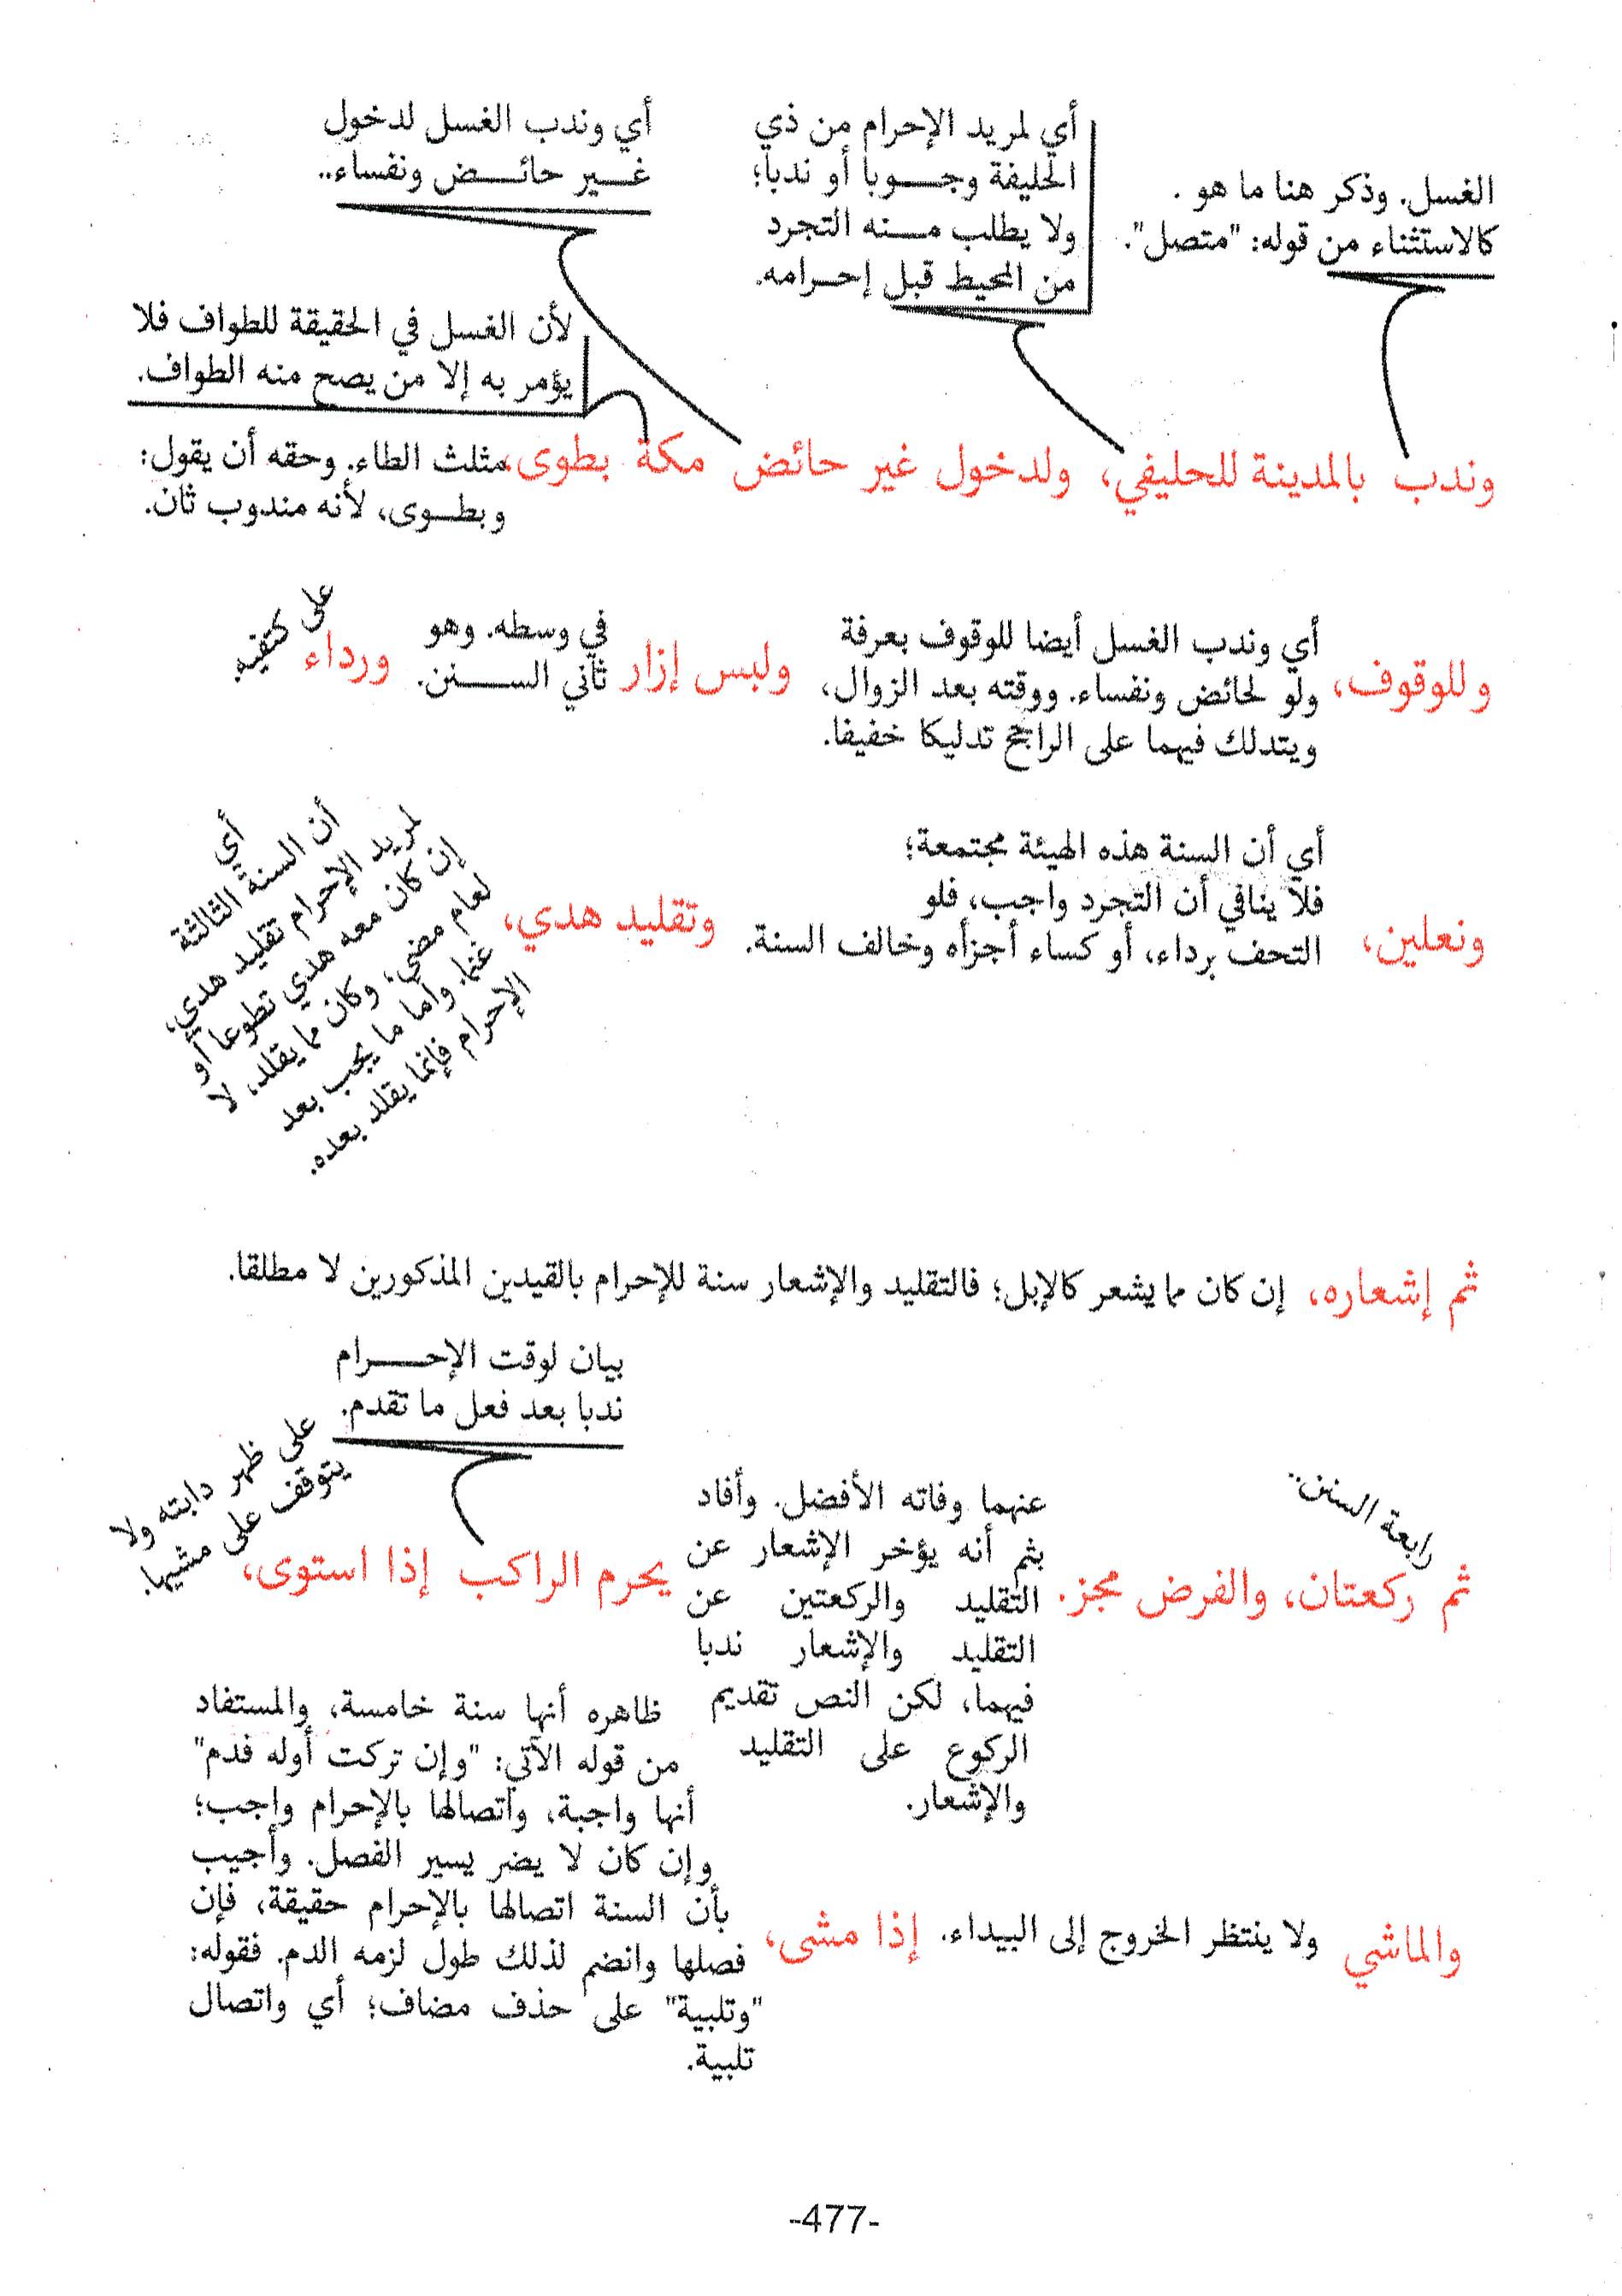 الغسل. وذكر هنا ما هو
كالاستثناء من قوله: "متصل".
أي لمريد الإحرام من ذي
الحليفة وجوبا أو ندبا؛
ولا يطلب منه التجرد
من المحيط قبل إحرامه.
أي وندب الغسل لدخول
غير حائض ونفساء..
لأن الغسل في الحقيقة للطواف فلا
يؤمر به إلا من يصح منه الطواف.
وندب بالمدينة للحليفي، ولدخول غير حائض مكة بطوى،
مثلث الطاء. وحقه أن يقول:
وبطوى، لأنه مندوب ثان.
وللوقوف،
أي وندب الغسل أيضا للوقوف بعرفة
ولو لحائض ونفساء. ووقته بعد الزوال،
ويتدلك فيهما على الراجح تدليكا خفيفا.
ولبس إزار
في وسطه. وهو
ثاني السنن.
ورداء
على كتفيه.
ونعلين،
أي أن السنة هذه الهيئة مجتمعة؛
فلا ينافي أن التجرد واجب، فلو
التحف برداء، أو كساء أجزأه وخالف السنة.
وتقليد هدي،
أي
أن السنة الثالثة
لمريد الإحرام تقليد هدي،
إن كان معه هدي تطوعا أو
لعام مضى، وكان مما يقلد، لا
غنما. وأما ما يجب بعد
الإحرام فإنما يقلد بعده.
ثم إشعاره، إن كان مما يشعر كالإبل؛ فالتقليد والإشعار سنة للإحرام بالقيدين المذكورين لا مطلقا.
بيان لوقت الإحرام
ندبا بعد فعل ما تقدم.
رابعة السنن..
ثم ركعتان، والفرض مجز.
عنهما وفاته الأفضل. وأفاد
بثم أنه يؤخر الإشعار عن
التقليد والركعتين عن
التقليد والإشعار ندبا
فيهما، لكن النص تقديم
الركوع على التقليد
والإشعار.
يحرم الراكب إذا استوى،
على ظهر دابته ولا
يتوقف على مشيها.
والماشي ولا ينتظر الخروج إلى البيداء. إذا مشى،
ظاهره أنها سنة خامسة، والمستفاد
من قوله الآتي: "وإن تركت أوله فدم"
أنها واجبة، واتصالها بالإحرام واجب؛
وإن كان لا يضر يسير الفصل. وأجيب
بأن السنة اتصالها بالإحرام حقيقة، فإن
فصلها وانضم لذلك طول لزمه الدم. فقوله:
"وتلبية" على حذف مضاف؛ أي واتصال
تلبية.
-477-